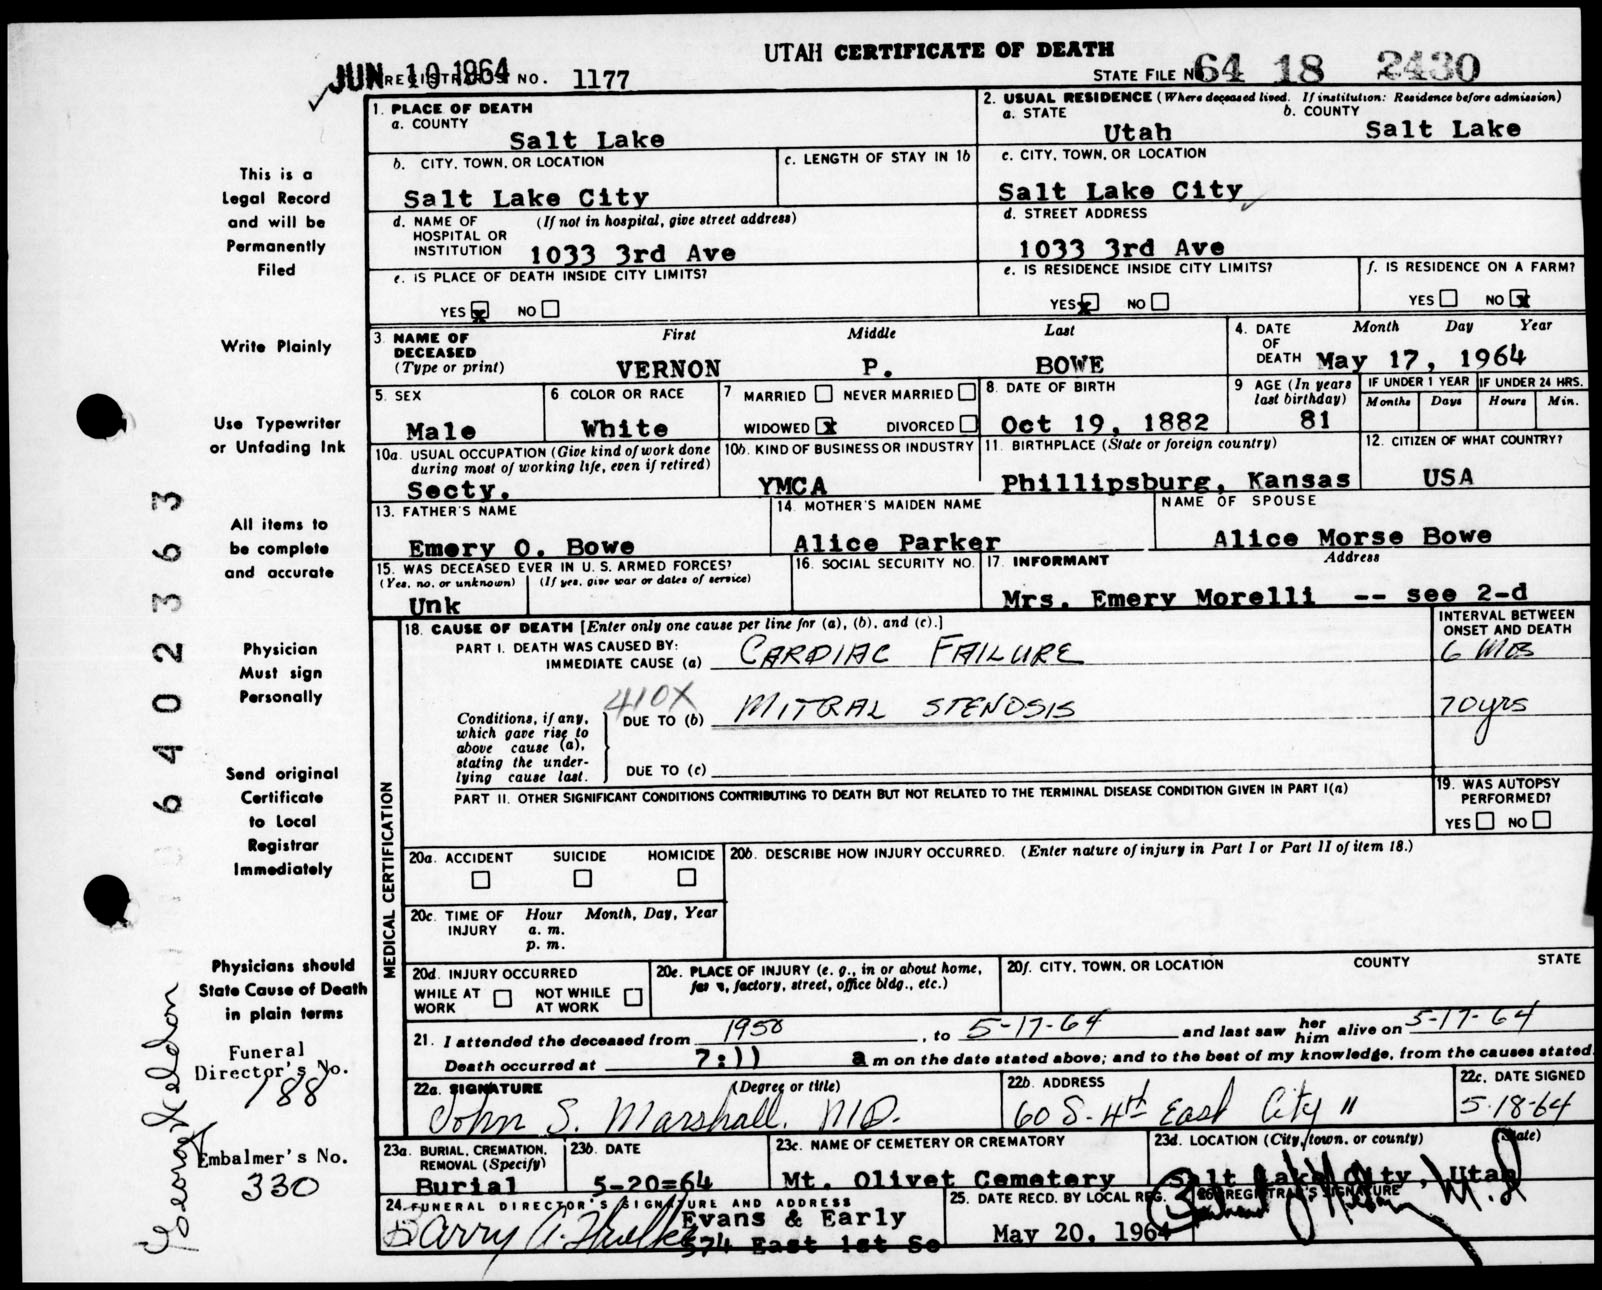 UTAH CERTIFICATE OF DEATH
JUN 10 1964 REGISTRAR'S NO. 1177
STATE FILE NO. 64 18 2430
1. PLACE OF DEATH
a. COUNTY
Salt Lake
2. USUAL RESIDENCE (Where deceased lived. If institution: Residence before admission)
a. STATE b. COUNTY
Utah Salt Lake
b. CITY, TOWN, OR LOCATION c. LENGTH OF STAY IN 1b
Salt Lake City
c. CITY, TOWN, OR LOCATION
Salt Lake City
d. NAME OF HOSPITAL OR INSTITUTION (If not in hospital, give street address)
1033 3rd Ave
d. STREET ADDRESS
1033 3rd Ave
e. IS PLACE OF DEATH INSIDE CITY LIMITS?
YES x NO
e. IS RESIDENCE INSIDE CITY LIMITS?
YES x NO
f. IS RESIDENCE ON A FARM?
YES NO x
3. NAME OF DECEASED (Type or print)
First Middle Last
VERNON P. BOWE
4. DATE OF DEATH Month Day Year
May 17, 1964
5. SEX
Male
6. COLOR OR RACE
White
7 MARRIED NEVER MARRIED
WIDOWED x DIVORCED
8. DATE OF BIRTH
Oct 19, 1882
9 AGE (In years last birthday)
81
IF UNDER 1 YEAR IF UNDER 24 HRS.
Months Days Hours Min.
10a. USUAL OCCUPATION (Give kind of work done during most of working life, even if retired)
Secty.
10b. KIND OF BUSINESS OR INDUSTRY
YMCA
11. BIRTHPLACE (State or foreign country)
Phillipsburg, Kansas
12. CITIZEN OF WHAT COUNTRY?
USA
13. FATHER'S NAME
Emery O. Bowe
14. MOTHER'S MAIDEN NAME
Alice Parker
NAME OF SPOUSE
Alice Morse Bowe
15. WAS DECEASED EVER IN U. S. ARMED FORCES?
(Yes, no, or unknown) (If yes, give war or dates of service)
Unk
16. SOCIAL SECURITY NO.
17. INFORMANT Address
Mrs. Emery Morelli -- see 2-d
MEDICAL CERTIFICATION
18. CAUSE OF DEATH [Enter only one cause per line for (a), (b), and (c).]
INTERVAL BETWEEN ONSET AND DEATH
PART I. DEATH WAS CAUSED BY:
IMMEDIATE CAUSE (a) CARDIAC FAILURE 6 Mos
410X
Conditions, if any, which gave rise to above cause (a), stating the underlying cause last.
DUE TO (b) MITRAL STENOSIS 70 yrs
DUE TO (c)
PART II. OTHER SIGNIFICANT CONDITIONS CONTRIBUTING TO DEATH BUT NOT RELATED TO THE TERMINAL DISEASE CONDITION GIVEN IN PART I(a)
19. WAS AUTOPSY PERFORMED?
YES NO
20a. ACCIDENT SUICIDE HOMICIDE
20b. DESCRIBE HOW INJURY OCCURRED. (Enter nature of injury in Part I or Part II of item 18.)
20c. TIME OF INJURY Hour Month, Day, Year
a. m.
p. m.
20d. INJURY OCCURRED
WHILE AT WORK NOT WHILE AT WORK
20e. PLACE OF INJURY (e. g., in or about home, farm, factory, street, office bldg., etc.)
20f. CITY, TOWN, OR LOCATION COUNTY STATE
21. I attended the deceased from 1950, to 5-17-64 and last saw her him alive on 5-17-64
Death occurred at 7:11 a m on the date stated above; and to the best of my knowledge, from the causes stated.
22a. SIGNATURE (Degree or title)
John S. Marshall. M.D.
22b. ADDRESS
60 S. 4th East City 11
22c. DATE SIGNED
5-18-64
23a. BURIAL, CREMATION, REMOVAL (Specify)
Burial
23b. DATE
5-20=64
23c. NAME OF CEMETERY OR CREMATORY
Mt. Olivet Cemetery
23d. LOCATION (City, town, or county) (State)
Salt Lake City, Utah
24. FUNERAL DIRECTOR'S SIGNATURE AND ADDRESS
Evans & Early
574 East 1st So
25. DATE RECD. BY LOCAL REG.
May 20, 1964
26. REGISTRAR'S SIGNATURE
This is a
Legal Record
and will be
Permanently
Filed
Write Plainly
Use Typewriter
or Unfading Ink
All items to
be complete
and accurate
Physician
Must sign
Personally
Send original
Certificate
to Local
Registrar
Immediately
Physicians should
State Cause of Death
in plain terms
Funeral
Director's No.
188
Embalmer's No.
330
6402363